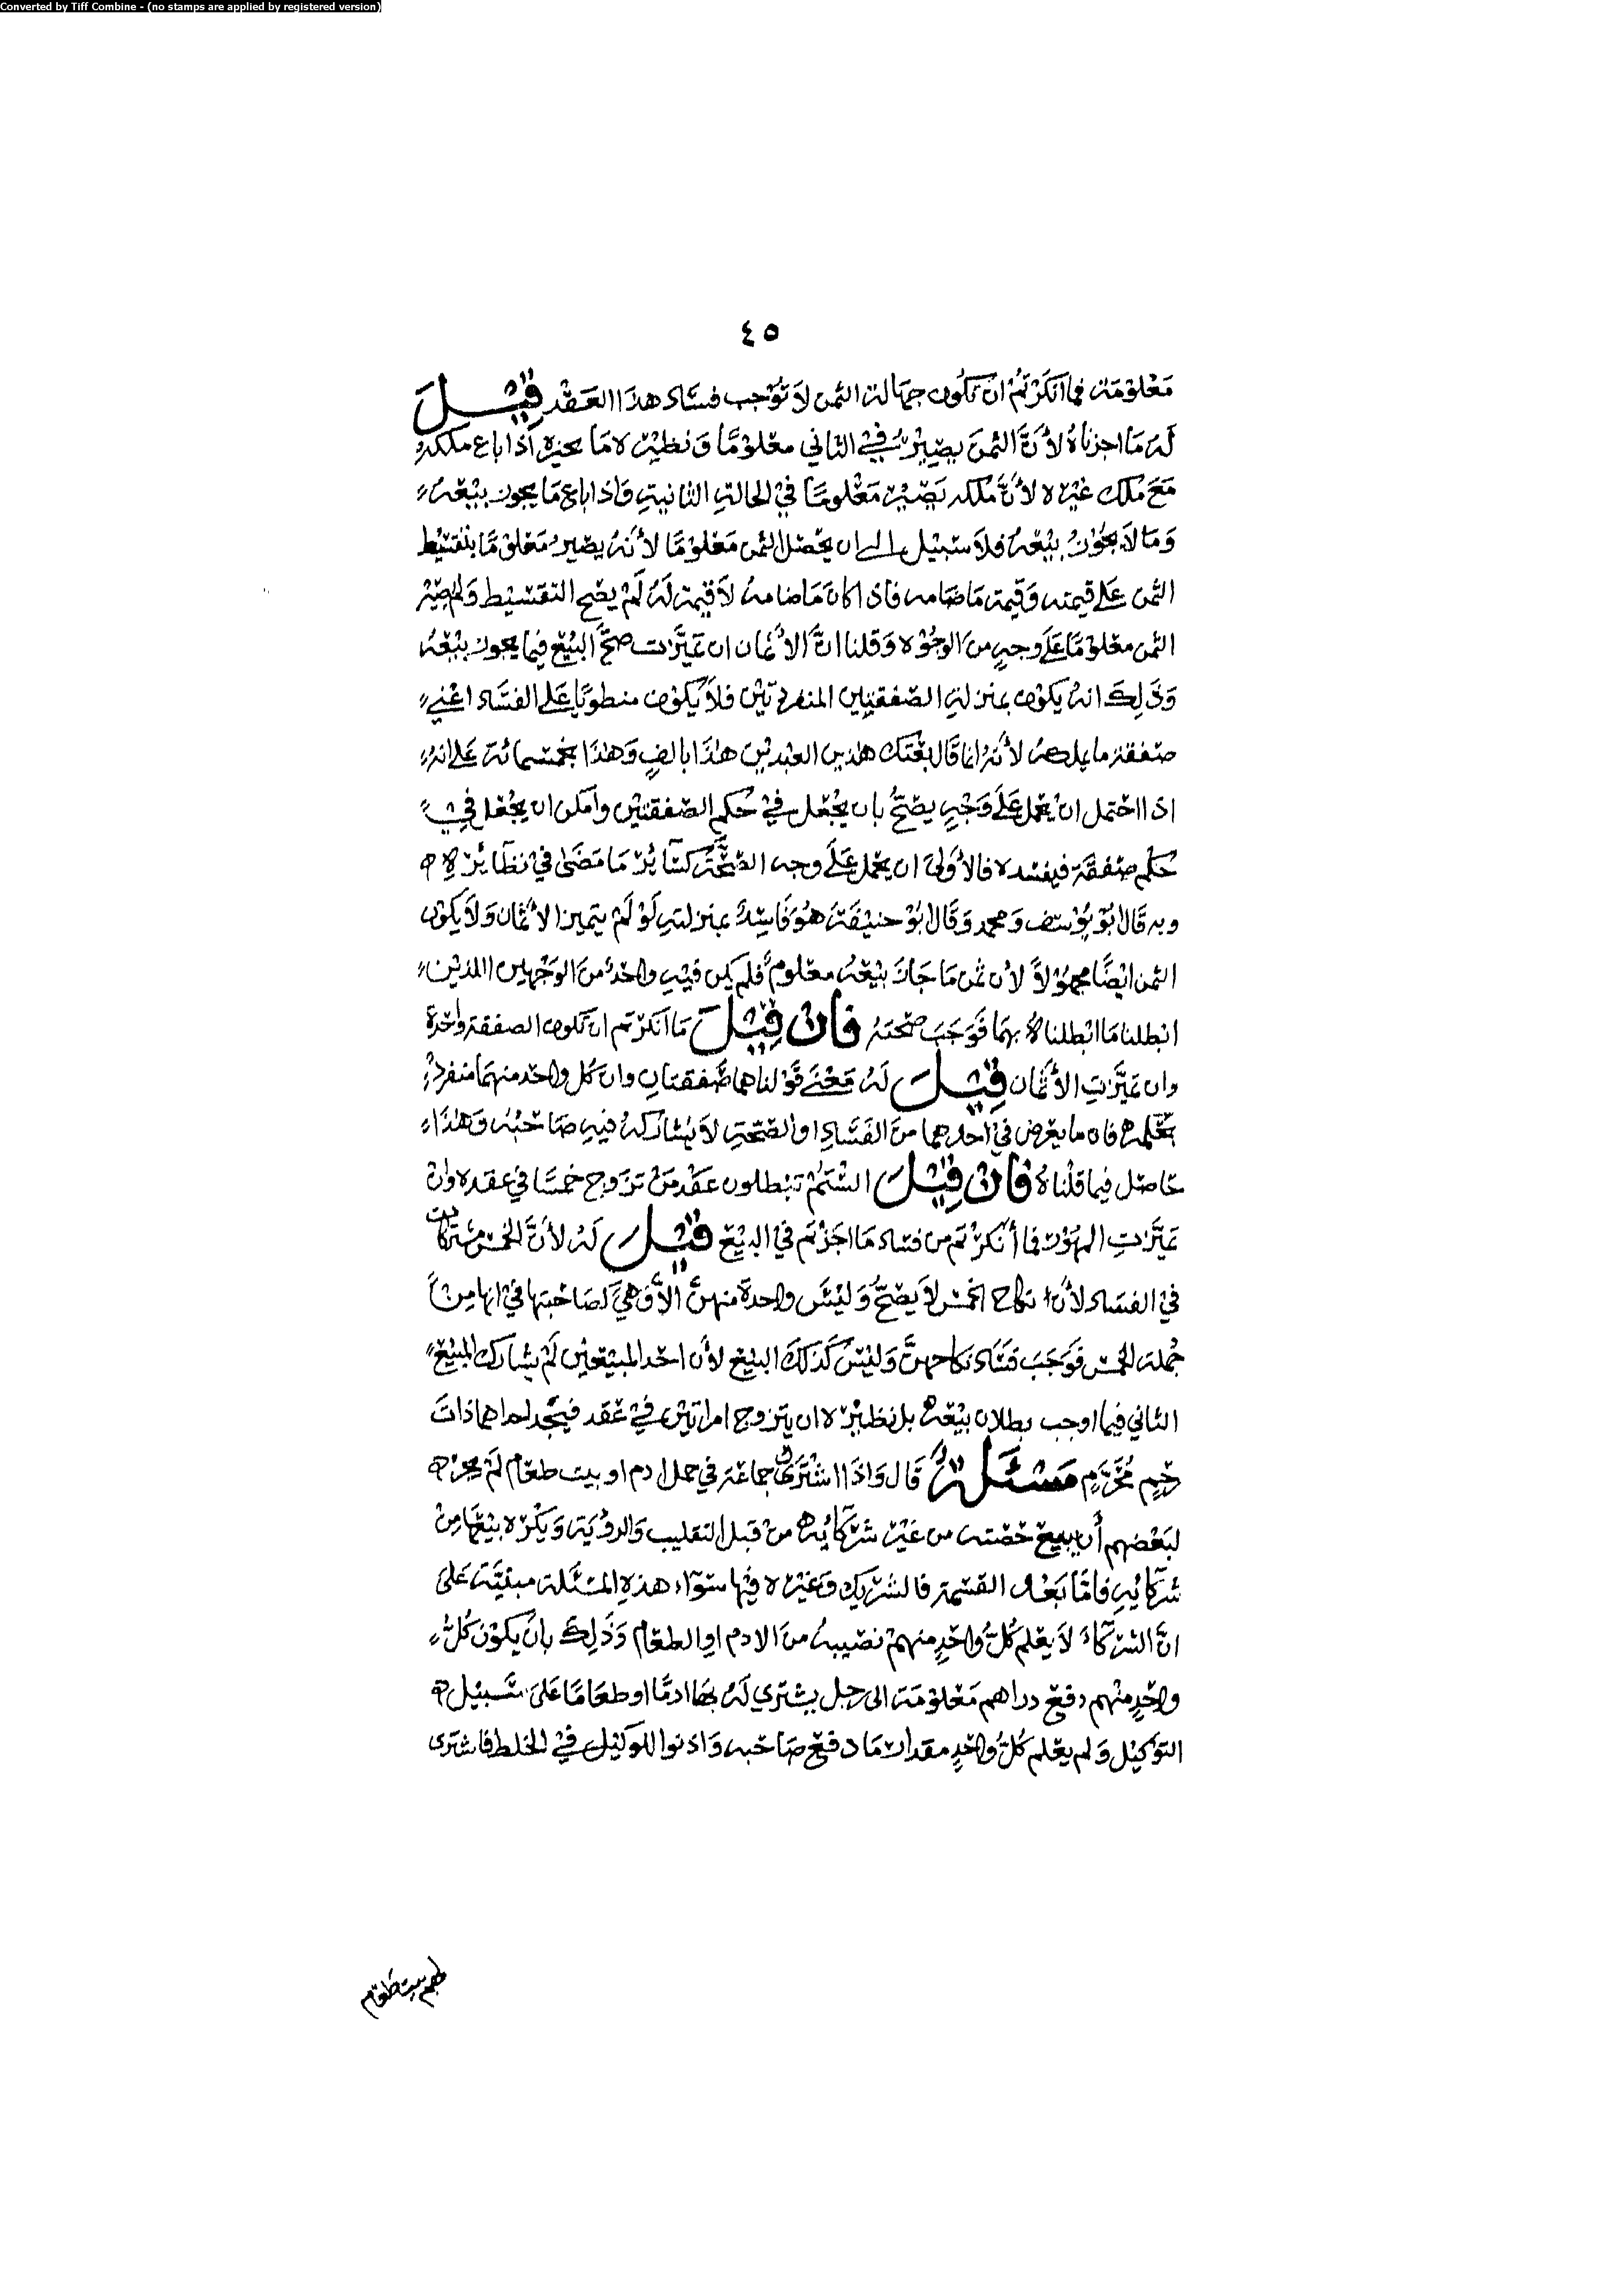 Converted by Tiff Combine - (no stamps are applied by registered version)
٤٥
مَعْلُوْمَة فما انكَرْتُمْ ان تكُون جهَالة الثمن لاَ تُوْجب فسَاد هذا العَقْد قِيْلَ
لَهُ مَا اجزناهُ لأنَّ الثمنَ يصِيْرُ في الثاني معْلوْمًا وَنظيْره مَا نجيزه اذا باع ملكهُ
مَعَ مُلك غَيْره لأنَّ مُلكه يَصِيْر مَعْلومًا فيْ الحالةِ الثانيةِ وَاذا باع مَا يجوز بيْعَهُ
وَمَا لاَ يجُوْزُ بيْعَهُ فلاَ سَبيْل الى ان يحْصل الثمن مَعْلوْمًا لأنهُ يصير مَعْلوْمًا بتقسْيْط
الثمن عَلى قيمته وَقيمة مَا ضامه فاذا كان مَا ضامهُ لاَ قيمة لَهُ لَمْ يصح التقسيْط وَلم يصِيْر
الثمن معْلوْمًا عَلَى وجهٍ منَ الوجُوْه وَقلنا انَّ الأثمان ان تميَّزت صحَّ البيْع فيما يجوز بيْعهُ
وَذلِكَ انهُ يكوْن بمنزلةِ الصّفقتين المنفردتين فلاَ يكوْن منطويًا عَلى الفسَاد اعْني
صفقة مَا يملكه لأنهُ اذا قَال بعْتك هذين العبْديْن هذا بالفٍ وَهذَا بخمسمائة عَلى انهُ
اذا احْتمل انْ يحْمل عَلَى وَجْهٍ يصحُّ بان يجْعَل فيْ حُكم الصّفقتيْن وَامكن ان يجْعَل فيْ
حُكم صفقة فيفسده فالأوْلىَ ان يحمل عَلَى وجه الصِّحَّة كسَائر مَا مَضَى فيْ نظَائره
وبه قَال ابُوْ يُوْسف وَمحمد وَقَال ابُوْ حنيْفَة هُوَ فَاسِد بمنزلةِ لوْ لَمْ يتميز الأثمان وَلاَ يكوْن
الثمن ايْضًا مجهُوْلاً لأن ثمن مَا جَازَ بيْعَهُ معْلومٌ فلم يكن فيْهِ واحدٌ منَ الوجْهيْن اللذيْن
ابْطلنا مَا ابْطلناهُ بهمَا فَوَجَبَ صحّتهُ فان قِيْلَ مَا انكرْتم ان تكون الصفقة وَاحدَة
وان تميَّزتِ الأثمان قِيْلَ لَهُ مَعْنى قوْلنا هما صفقتانِ وانَّ كُل وَاحد منهمَا منفردٌ
بحكمه فان مَا يعرض في احدهما منَ الفسَادِ او الصّحّةِ لاَ يشاركهُ فيهِ صَاحبهُ وَهذَا
حَاصل فيما قلناهُ فان قِيْلَ الستم تبْطلون عَقْد مَنْ تزوج خمسًا في عقده وانْ
تميَّزتِ المهُوْر فما أنكرْتم من فسَاد مَا اجَزْتم فيْ البيْع قيْل لَهُ لأنَّ الخمس مُشتركات
فيْ الفسَاد لأن نكاح الخمس لاَ يصحُّ وَليْسَ واحدةٌ منهنَّ الاَّ وَهيَ لصَاحبتها فيْ انها مِنْ
جُملة الخمس فَوَجَبَ فسَاد نكاحهنَّ وَليْسَ كَذلكَ البيْع لأن احد المبيْعين لمْ يشارك المبيْع
الثاني فيما اوجب بطلان بيْعه بل نظيْره ان يتزوج امراتيْن فيْ عَقد فيجد احداهما ذاتَ
رَحمٍ مُحَرَّمٍ مَسْئلَة قَال وَاذا اشْترَى جماعَة في جمل ادم او بيت طعَام لَمْ يجز
لبَعْضهم أن يبيْع حصّته من غَيْر شركَائه منْ قبل التقليب وَالرؤيَة وَيكْره بيْعهَا منْ
شركائهِ فامَّا بَعْد القسْمةِ فالشريْك وَغيْره فيْها سوَاء هذهِ المسْئلة مبنيَّة عَلى
انَّ الشركَاء لاَ يعْلم كُلُّ واحدٍ منهمْ نصْيبهُ منَ الادم او الطعَام وَذلِكَ بانْ يكوْن كُلُّ
وَاحدٍ منْهم دفع دراهم مَعْلوْمَة الى رجل يشتري لَهُ بها ادمًا او طعَامًا عَلى سَبيْل
التوْكيْل وَلم يعْلم كُلُّ وَاحدٍ مقدار مَا دفع صَاحبه وَاذنوا للوكيْل فيْ الخلط فاشترى